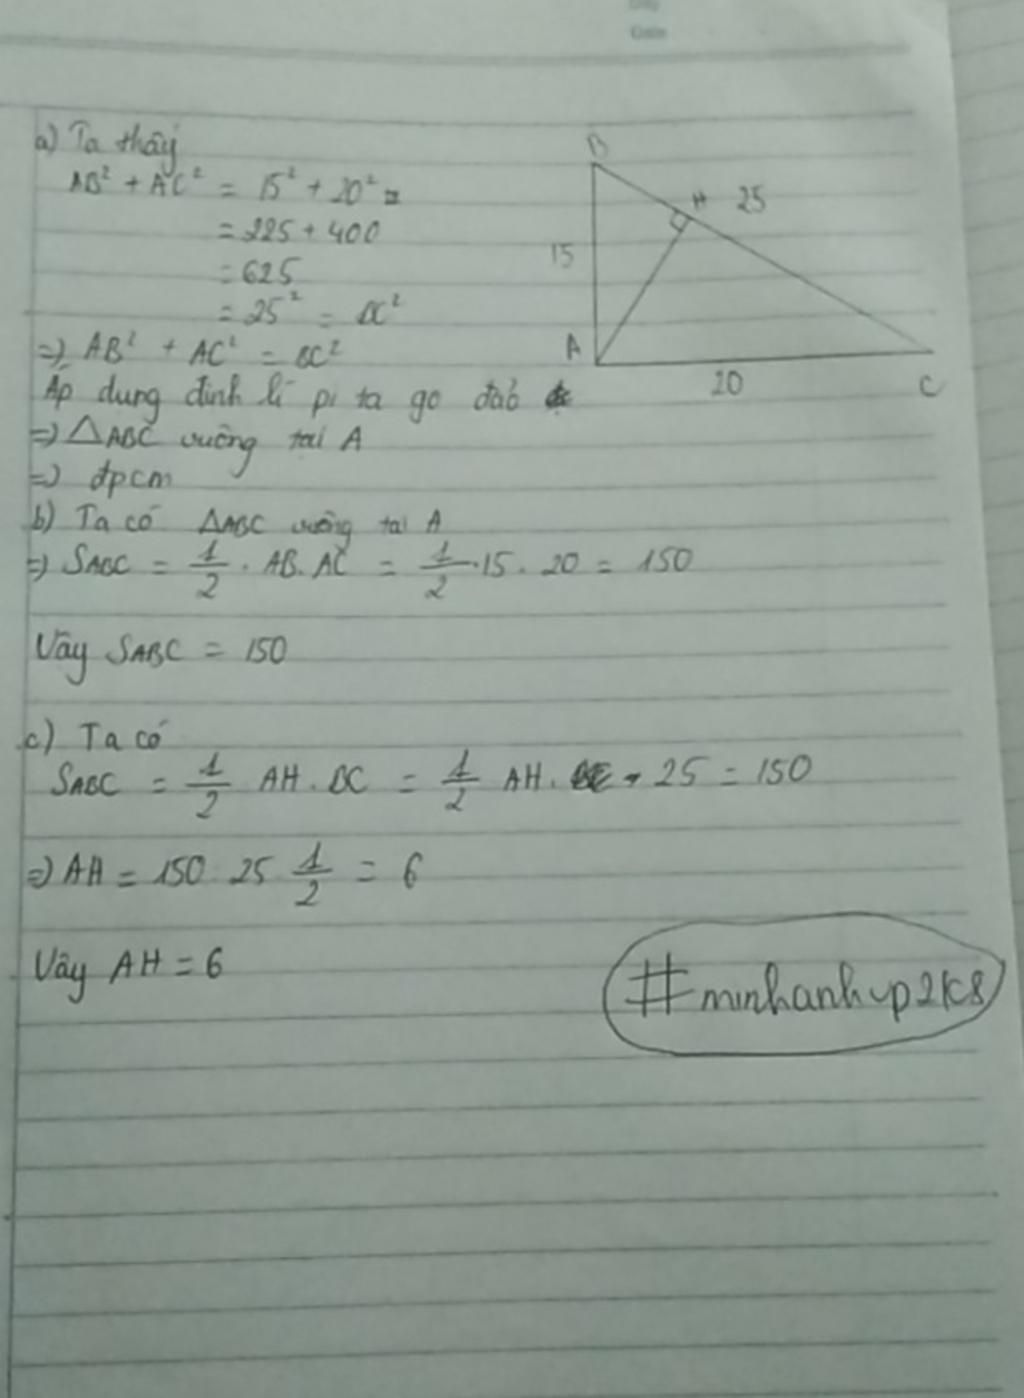 a) Ta thấy
AB² + AC² = 15² + 20²
= 225 + 400
= 625
= 25² = BC²
=> AB² + AC² = BC²
Áp dung đinh lí pi ta go đảo
=> △ABC vuông tai A
=> đpcm
B
H 25
15
A
20
C
b) Ta có △ABC vuông tai A
=> SABC = 1/2 . AB. AC = 1/2 . 15 . 20 = 150
Vây SABC = 150
c) Ta có
SABC = 1/2 AH . BC = 1/2 AH. . 25 = 150
=> AH = 150 25 1/2 = 6
Vây AH = 6
#minhanhvp2k8